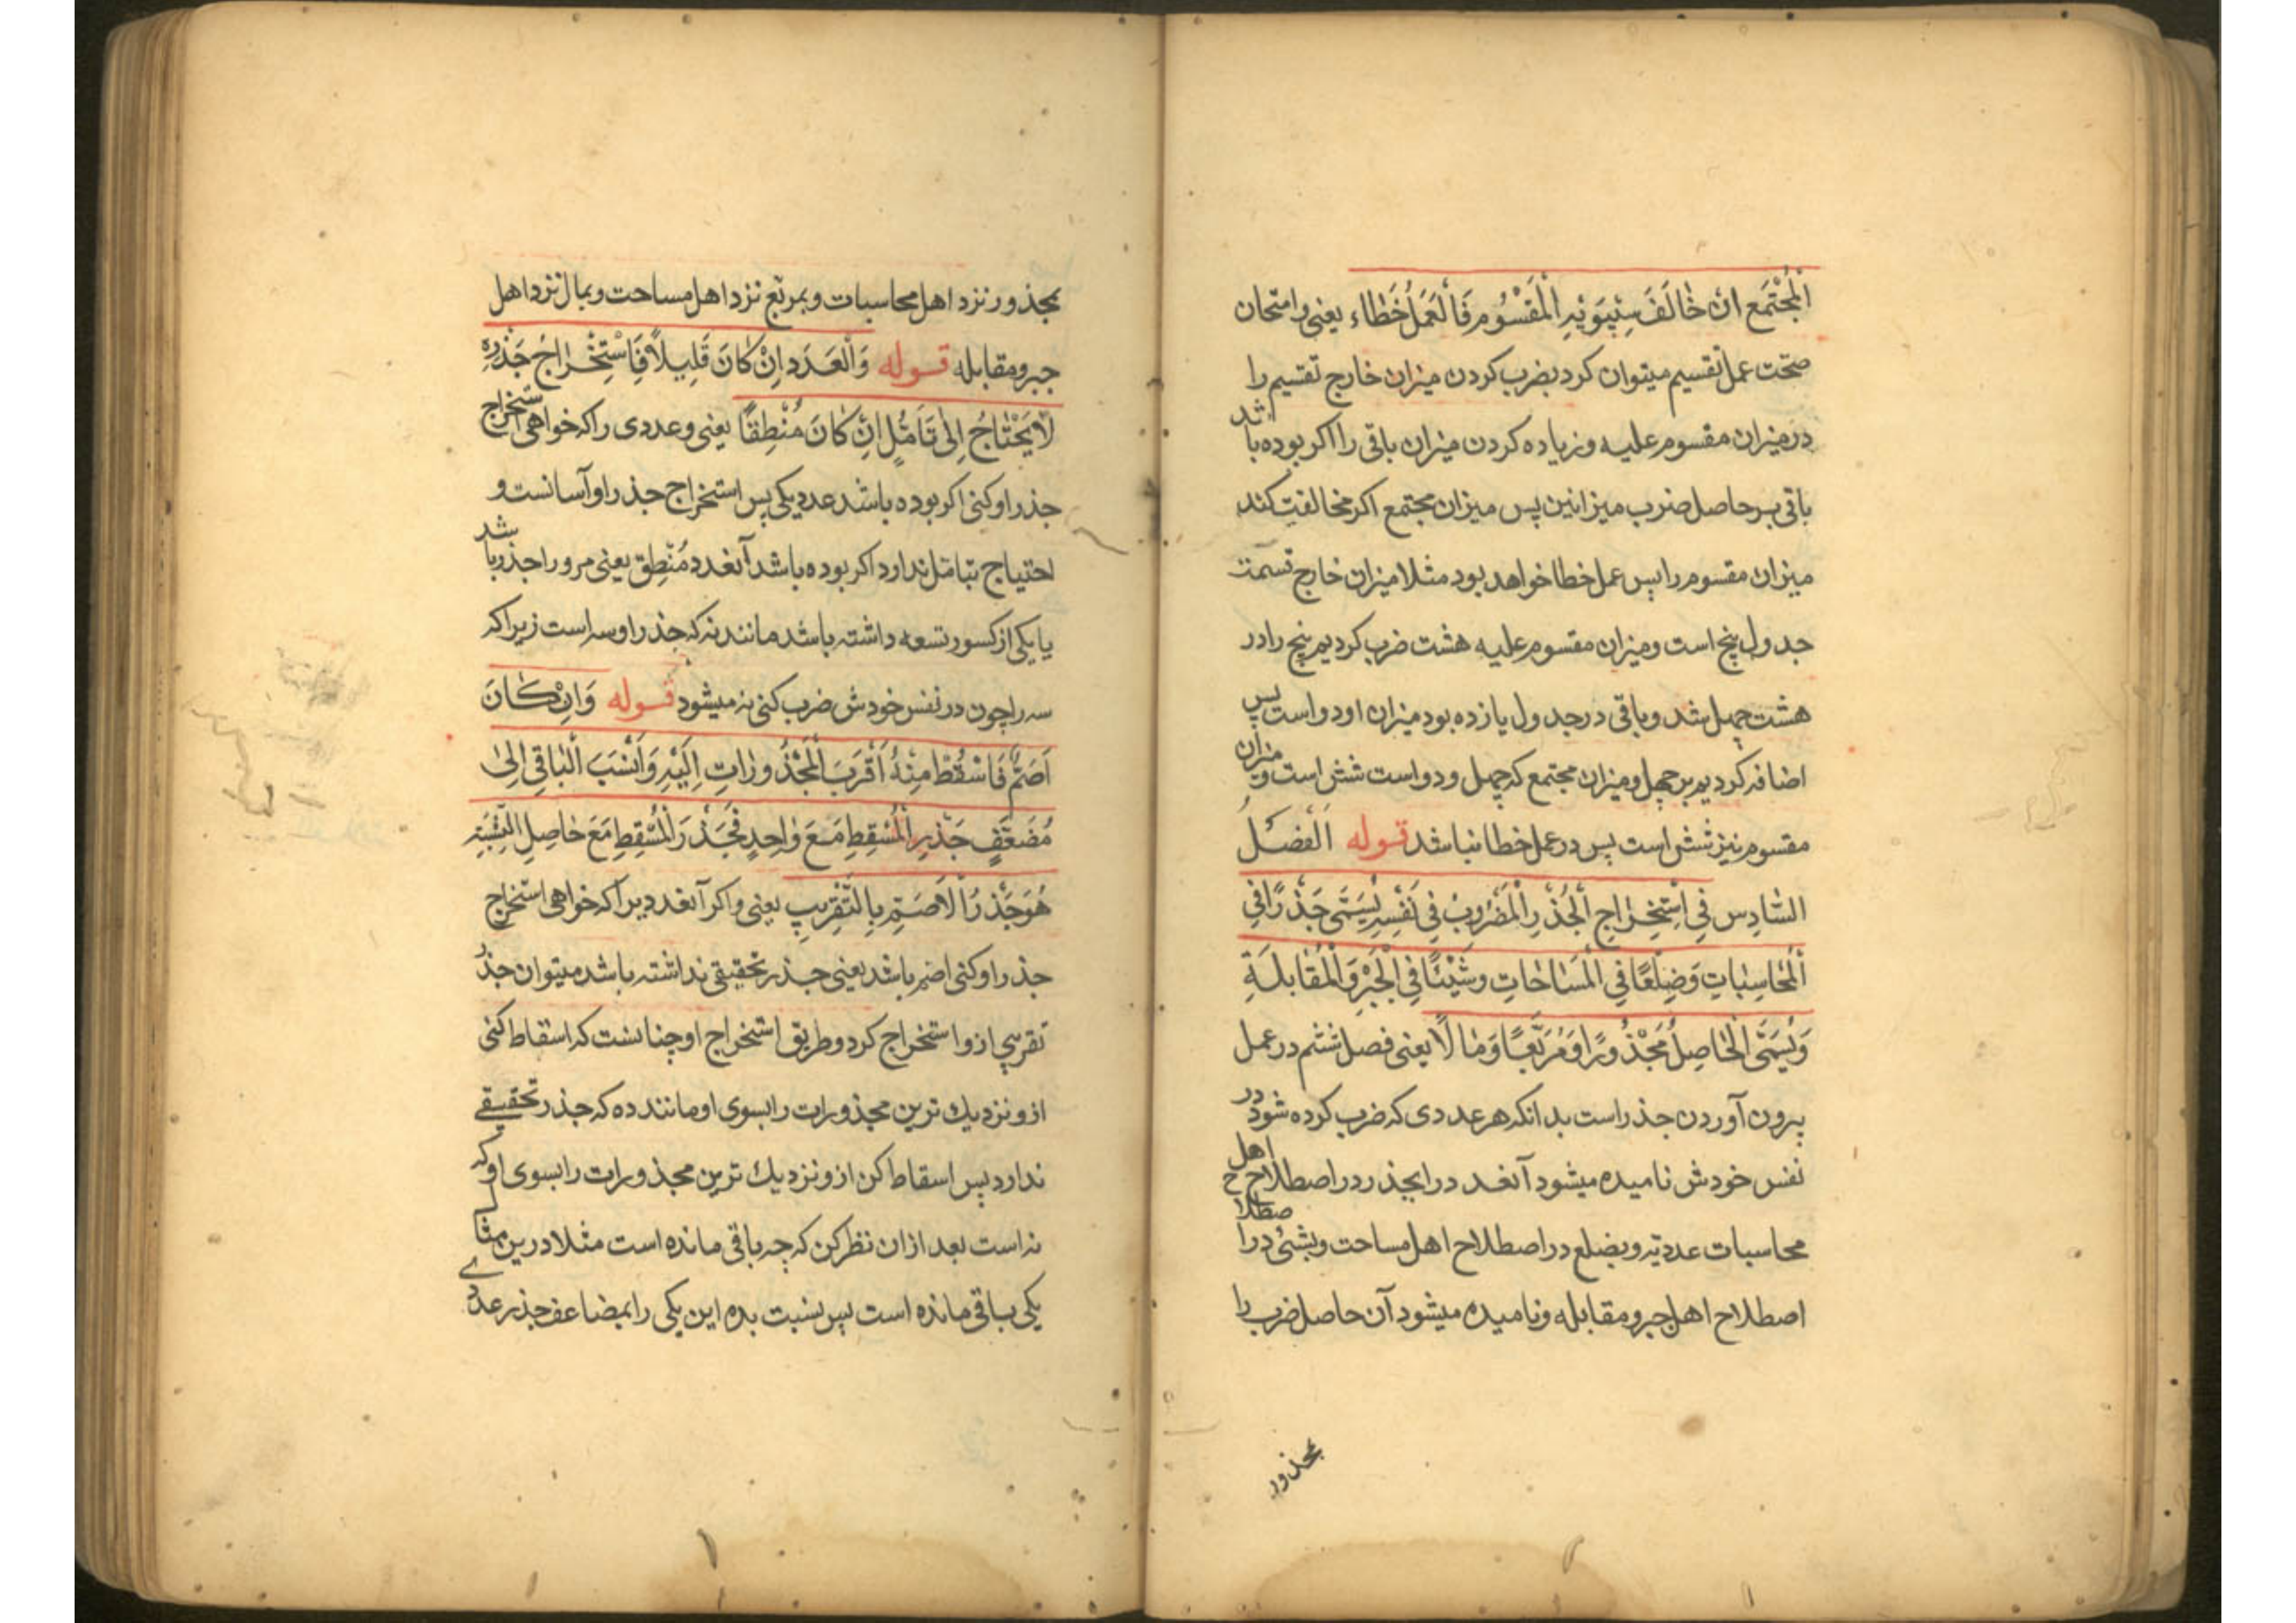 الْمُجْتَمَع انْ خٰالَفَ سِيْبَوَيْهِ الْمَقْسُومِ فَالْعَمَلُ خَطٰاء یعنی وامتحان
صحّت عمل تقسیم میتوان کرد بضرب کردن میزان خارج تقسیم را
در میزان مقسوم علیه و زیاده کردن میزان باقی را اکر بوده باشد
باقی بر حاصل ضرب میزانین پس میزان مجتمع اکر مخالفت کند
میزان مقسوم را پس عمل خطا خواهد بود مثلا میزان خارج قسمت
جدول پنج است و میزان مقسوم علیه هشت ضرب کردیم پنج را در
هشت چهل شد و باقی در جدول یازده بود میزان او دو است پس
اضافه کردیم بر چهل و میزان مجتمع که چهل و دو است شش است و میزان
مقسوم نیز شش است پس در عمل خطا نباشد قوله اَلْفَصْلُ
السّادِس فِی اسْتِخْرٰاجِ الْجُذْرِ الْمَضْرُوبُ فِی نَفْسِهِ یُسَمّٰی جَذْرًا فِی
الْمُحٰاسِبٰاتِ وَضِلْعًا فِی الْمَسٰاحٰاتِ وَشَیْئًا فِی الْجَبْرِ وَالْمُقٰابَلَةِ
وَیُسَمَّی الْحٰاصِلُ مَجْذُورًا وَمُرَبَّعًا وَمٰالًا یعنی فصل ششم در عمل
بیرون آوردن جذر است بدانکه هر عددی که ضرب کرده شود در
نفس خودش نامیده میشود آنعدد را بجذر در اصطلاح اهل
محاسبات عددیّه و بضلع در اصطلاح اهل مساحت و بشئ در اصطلا
اصطلاح اهل جبر و مقابله و نامیده میشود آن حاصل ضرب را
بمجذور
بمجذور نزد اهل محاسبات و بمربّع نزد اهل مساحت و بمال نزد اهل
جبر و مقابله قوله وَالْعَدَدِ اِنْ کٰانَ قَلِیلًا فَاسْتِخْرٰاجُ جَذْرِهِ
لٰایَحْتٰاجُ اِلٰی تَاَمُّلٍ اِنْ کٰانَ مُنْطِقًا یعنی و عددی را که خواهی استخراج
جذر او کنی اکر بوده باشد عدد یکی پس استخراج جذر او آسانست و
احتیاج بتامّل ندارد اکر بوده باشد آنعدد مُنْطِق یعنی مر ورا جذر باشد
یا یکی از کسور تسعه داشته باشد مانند نه که جذر او سه است زیرا که
سه را چون در نفس خودش ضرب کنی نه میشود قوله وَاِنْ کٰانَ
اَصَمَّ فَاسْقُطْ مِنْهُ اَقْرَبَ الْمَجْذُورٰاتِ اِلَیْهِ وَاَنْسَبَ الْبٰاقِی اِلیٰ
مُضَعَّفِ جَذْرِ الْمُسْقِطِ مَعَ وٰاحِدٍ فَجَذْرَ الْمُسْقِطِ مَعَ حٰاصِلِ النِّسْبَةِ
هُوَ جَذْرُ الْاَصَمِّ بِالتَّقْرِیبِ یعنی و اکر آنعدد یرا که خواهی استخراج
جذر او کنی اصم باشد یعنی جذر تحقیقی نداشته باشد میتوان جذر
تقریبی ازو استخراج کرد و طریق استخراج او چنانست که اسقاط کنی
ازو نزدیك ترین مجذورات را بسوی او مانند ده که جذر تحقیقی
ندارد پس اسقاط کن ازو نزدیك ترین مجذورات را بسوی او که
نه است بعد ازان نظر کن که چه باقی مانده است مثلا درین مثال
یکی باقی مانده است پس نسبت بده این یکی را بمضاعف جذر عددی